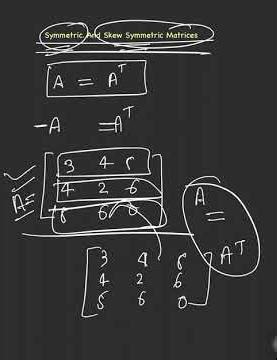 Symmetric And Skew Symmetric Matrices
A = Aᵀ
-A = Aᵀ
3 4 5
A= 4 2 6
5 6 0
A = Aᵀ
3 4 5
4 2 6
5 6 0